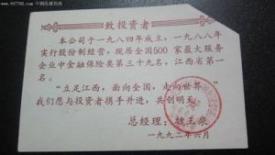 致投资者
本公司于一九八四年成立，一九八八年
实行股份制经营，现居全国500家最大服务
企业中金融保险类第三十九名，江西省第一
名。
“立足江西，面向全国，走向世界”
我们愿与投资者携手并进，共创明天。
总经理：魏玉
一九九二年六月